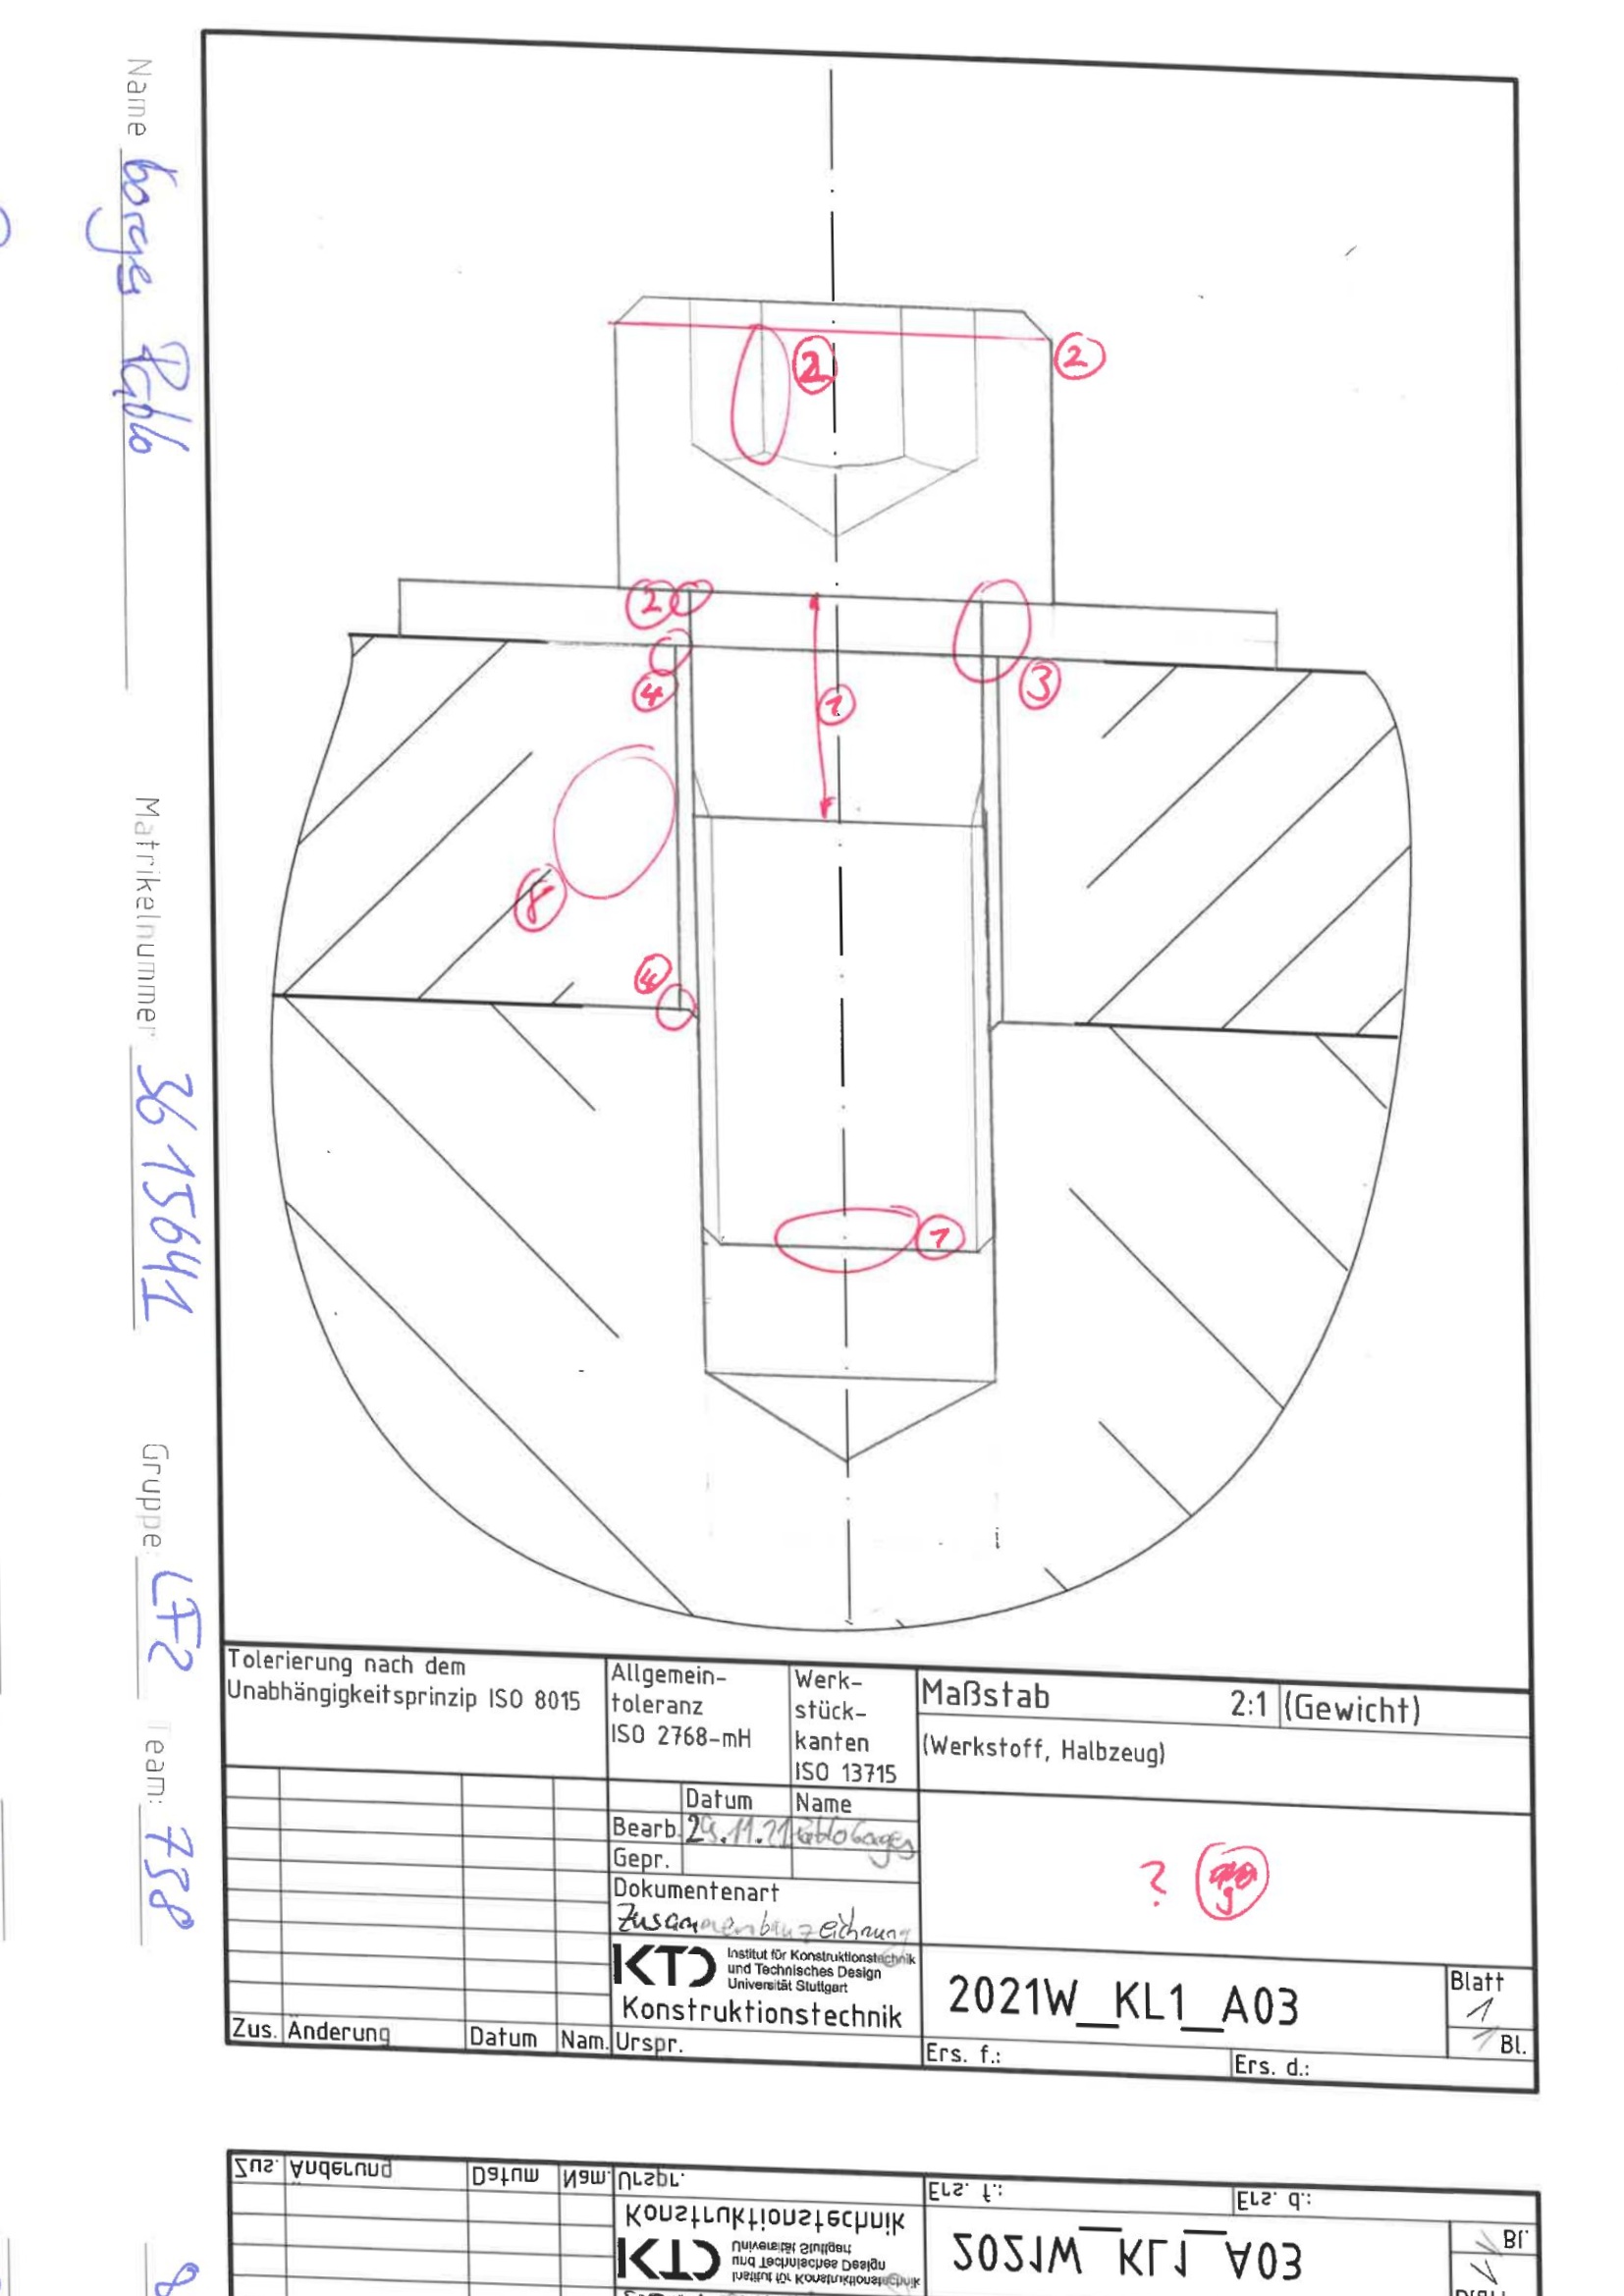 Name borges Pablo
Matrikelnummer 3615641
Gruppe: LF2 Team: 758
2
2
2
4
3
1
8
4
1
Tolerierung nach dem
Unabhängigkeitsprinzip ISO 8015
Allgemein-
toleranz
ISO 2768-mH
Werk-
stück-
kanten
ISO 13715
Maßstab 2:1 (Gewicht)
(Werkstoff, Halbzeug)
Datum Name
Bearb. 29.11.21 Pablo Borges
Gepr.
Dokumentenart
Zusammenbauzeichnung
? 9
KTD Institut für Konstruktionstechnik
und Technisches Design
Universität Stuttgart
Konstruktionstechnik
2021W_KL1_A03
Blatt
1
1 Bl.
Zus. Änderung Datum Nam. Urspr. Ers. f.: Ers. d.:
Zus. Änderung Datum Nam. Urspr. Ers. f.: Ers. d.:
Konstruktionstechnik
2021W_KL1_A03
Bl.
1
KTD Universität Stuttgart
und Technisches Design
Institut für Konstruktionstechnik